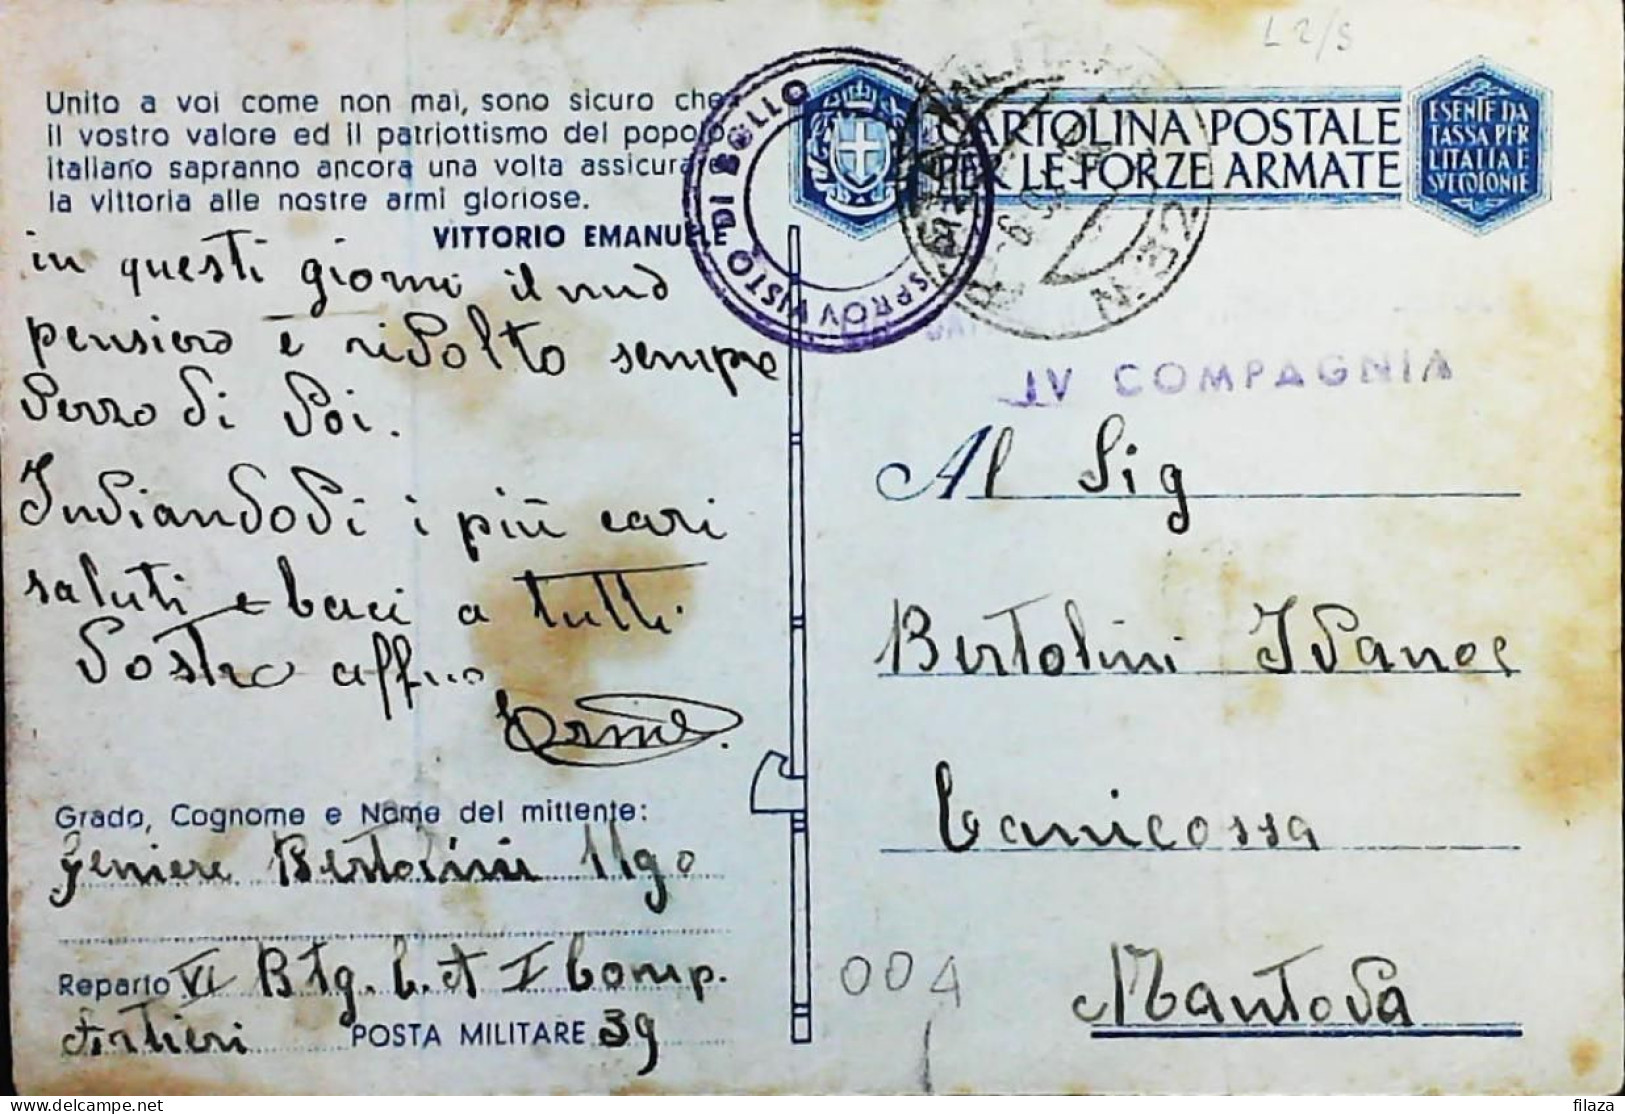 L 2/S
Unito a voi come non mai, sono sicuro che
il vostro valore ed il patriottismo del popolo
italiano sapranno ancora una volta assicurare
la vittoria alle nostre armi gloriose.
VITTORIO EMANUELE
in questi giorni il mio
pensiero è rivolto sempre
verso di voi.
Inviandovi i più cari
saluti e baci a tutti
Vostro affmo
Grado, Cognome e Nome del mittente:
Geniere Bertolini Ugo
Reparto VI Btg. C. A I Comp.
Artieri POSTA MILITARE 39
SPROVVISTO DI BOLLO
CARTOLINA POSTALE
PER LE FORZE ARMATE
ESENTE DA
TASSA PER
L'ITALIA E
SUE COLONIE
POSTA MILITARE
N. 82
IV COMPAGNIA
Al Sig
Bertolini Ivanoe
Canicossa
Mantova
004
filaza